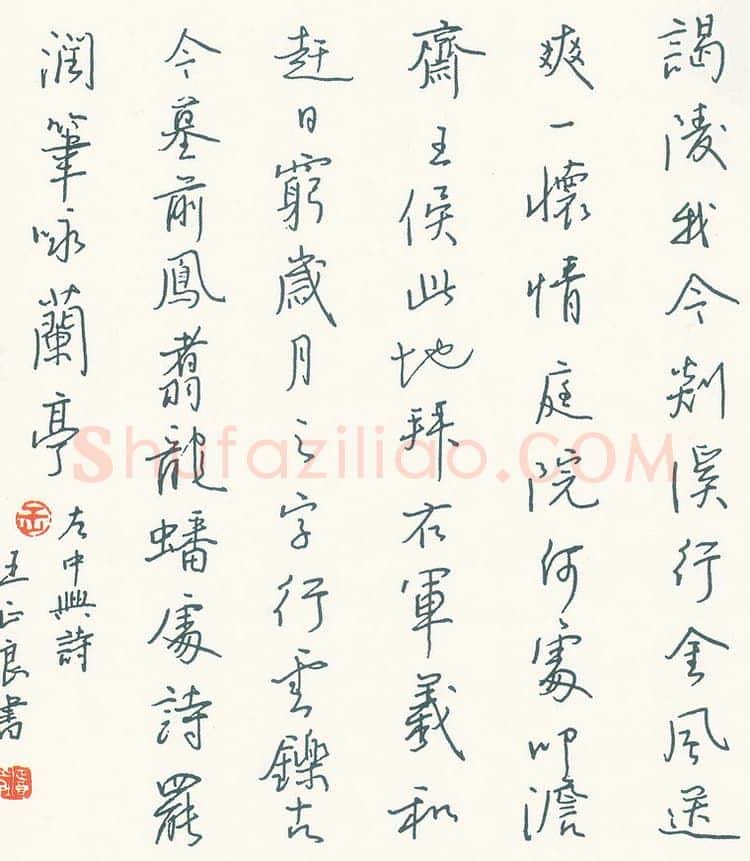 謁陵我今剡溪行金風送
爽一懷情庭院何處叩澹
齋王侯此地拜右軍羲和
趕日窮歲月之字行雲鑠古
今墓前鳳翥龍蟠處詩罷
潤筆咏蘭亭
左中興詩
王正良書
Shufaziliao.COM